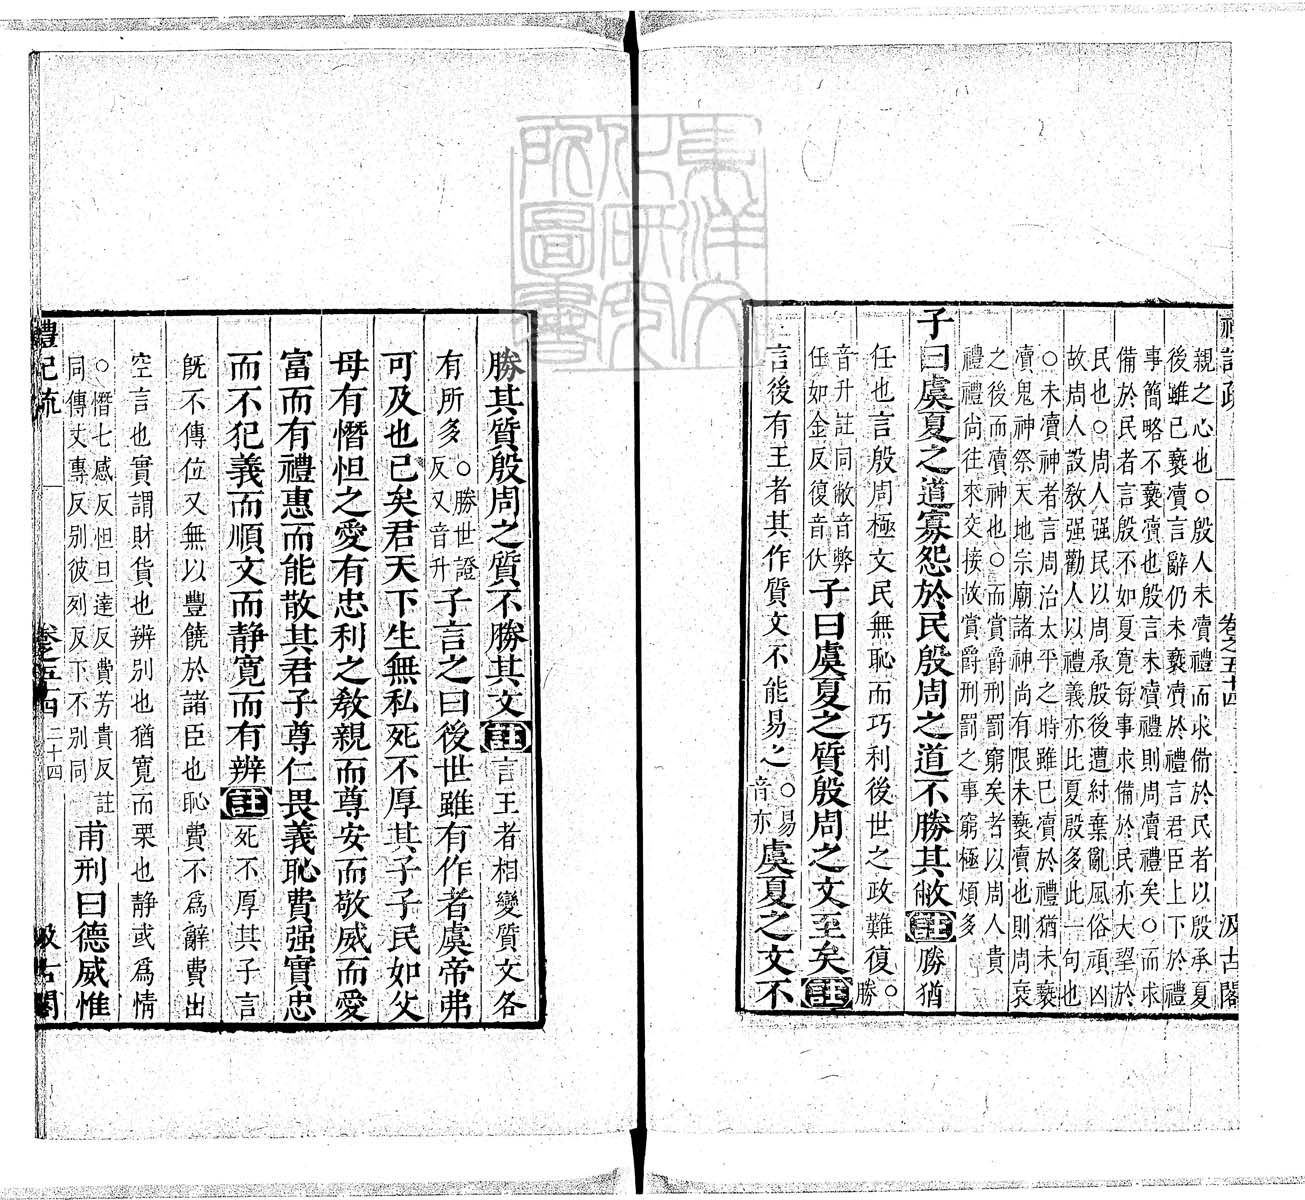 禮記疏　卷之五十四　汲古閣
親之心也○殷人未瀆禮而求備於民者以殷承夏
後雖已褻瀆言辭仍未褻瀆於禮言君臣上下於禮
事簡略不褻瀆也殷言未瀆禮則周瀆禮矣○而求
備於民者言殷不如夏寬每事求備於民亦大望於
民也○周人强民以周承殷後遭紂衰亂風俗頑凶
故周人設教强勸人以禮義亦比夏殷多此一句也
○未瀆神者言周治太平之時雖已瀆於禮猶未褻
瀆鬼神祭天地宗廟諸神尚有限未褻瀆也則周衰
之後而瀆神也○而賞爵刑罰窮矣者以周人貴
禮禮尚往來交接故賞爵刑罰之事窮極煩多
子曰虞夏之道寡怨於民殷周之道不勝其敝註勝猶
任也言殷周極文民無恥而巧利後世之政難復○勝
音升註同敝音弊
任如金反復音伏
子曰虞夏之質殷周之文至矣註
言後有王者其作質文不能易之○易音亦虞夏之文不
勝其質殷周之質不勝其文註言王者相變質文各
有所多○勝世證反又音升子言之曰後世雖有作者虞帝弗
可及也已矣君天下生無私死不厚其子子民如父
母有憯怛之愛有忠利之教親而尊安而敬威而愛
富而有禮惠而能散其君子尊仁畏義恥費强實忠
而不犯義而順文而靜寬而有辨註死不厚其子言
既不傳位又無以豐饒於諸臣也恥費不爲辭費出
空言也實謂財貨也辨別也猶寬而栗也靜或爲情
○憯七感反怛旦達反費芳貴反註
同傳丈專反別彼列反下不別同
甫刑曰德威惟
禮記疏　卷之五十四　二十四　汲古閣
東洋文化研究所圖書